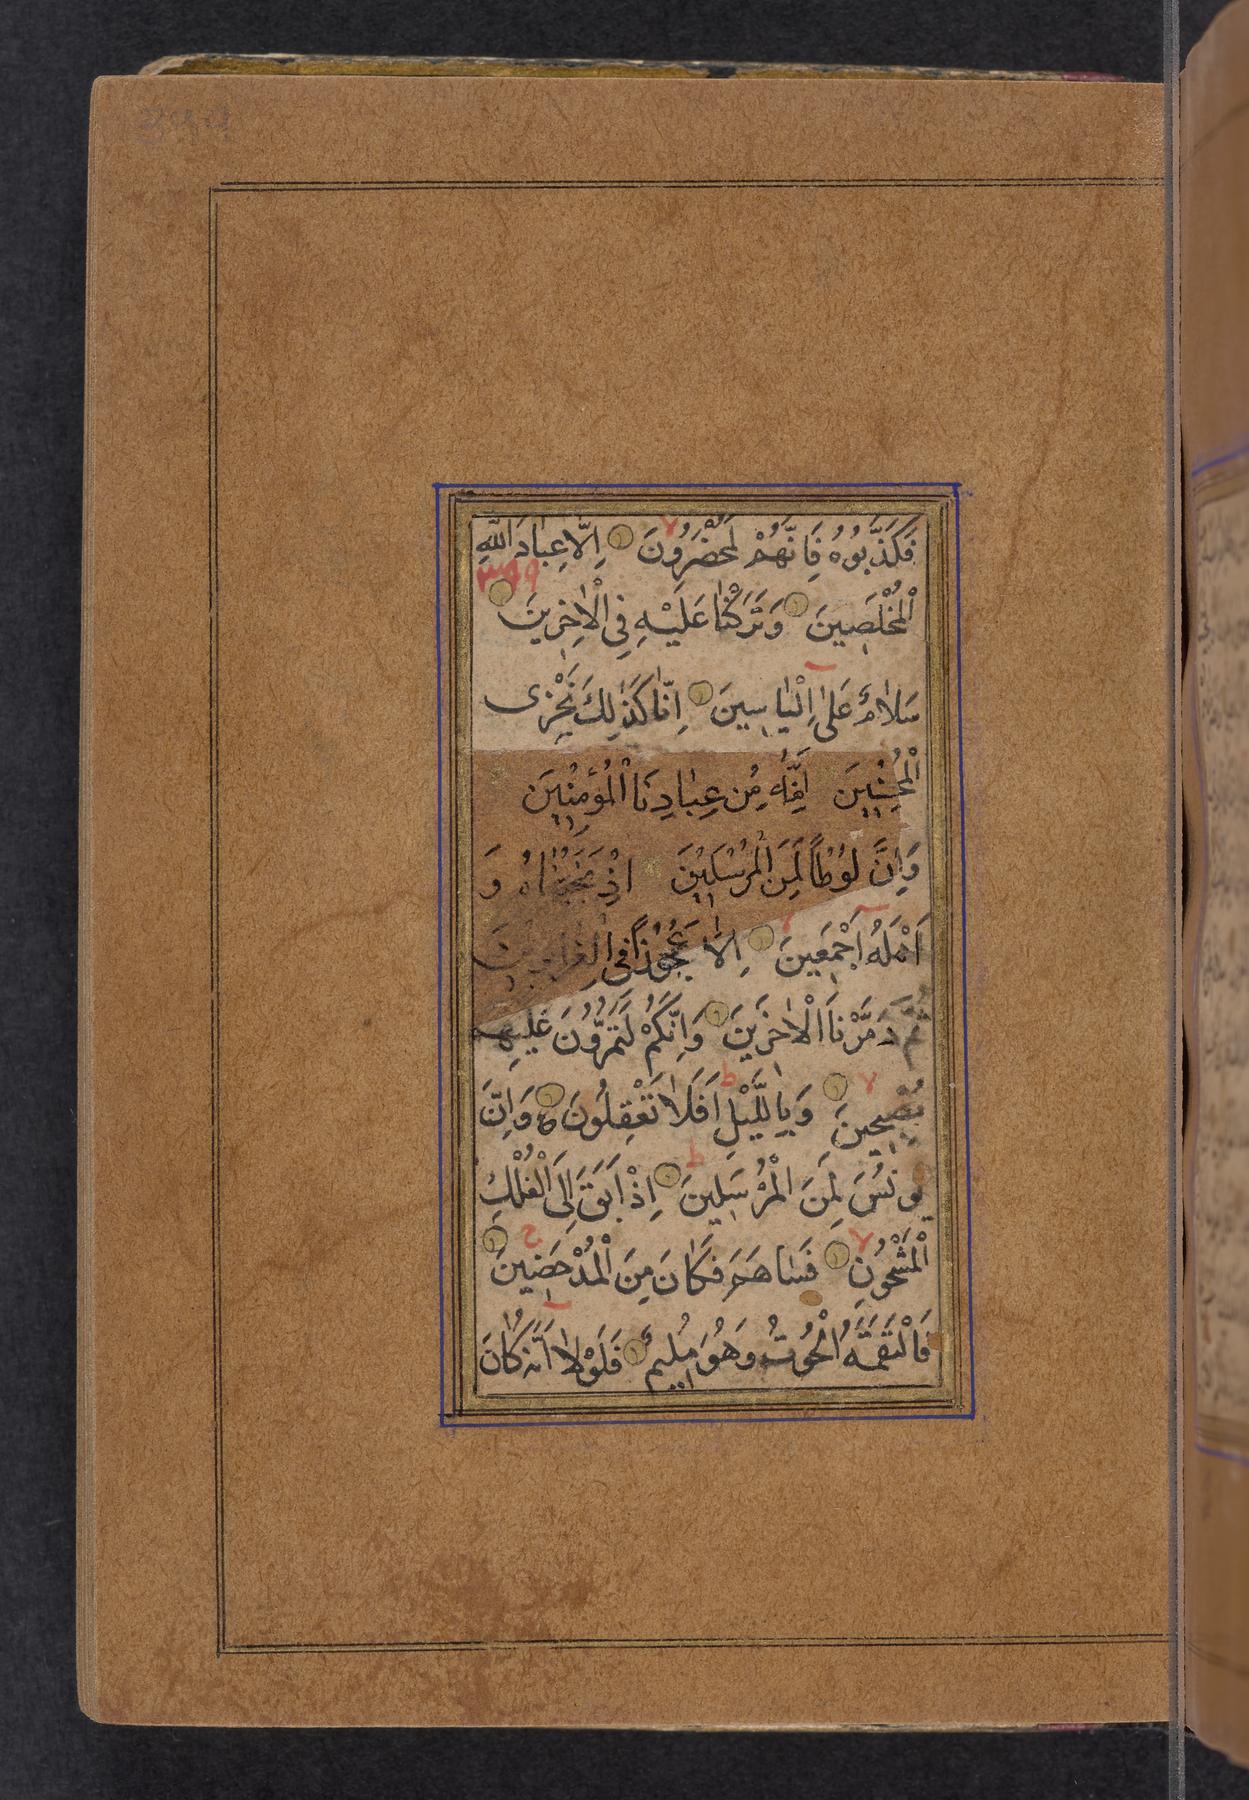 فَكَذَّبُوهُ فَاِنَّهُمْ لَمُحْضَرُونَ اِلَّا عِبَادَ اللّٰهِ
الْمُخْلَصِينَ وَتَرَكْنَا عَلَيْهِ فِي الْاٰخِرِينَ
سَلَامٌ عَلٰى اِلْيَاسِينَ اِنَّا كَذٰلِكَ نَجْزِى
الْمُحْسِنِينَ اِنَّهُ مِنْ عِبَادِنَا الْمُؤْمِنِينَ
وَاِنَّ لُوْطًا لَمِنَ الْمُرْسَلِيْنَ اِذْ نَجَّيْنَاهُ وَ
اَهْلَهُ اَجْمَعِينَ اِلَّا عَجُوْزًا فِي الْغَابِرِيْنَ
ثُمَّ دَمَّرْنَا الْاٰخَرِينَ وَاِنَّكُمْ لَتَمُرُّونَ عَلَيْهِمْ
مُصْبِحِينَ وَبِالَّيْلِ اَفَلَا تَعْقِلُونَ وَاِنَّ
يُونُسَ لَمِنَ الْمُرْسَلِينَ اِذْ اَبَقَ اِلَى الْفُلْكِ
الْمَشْحُونِ فَسَاهَمَ فَكَانَ مِنَ الْمُدْحَضِينَ
فَالْتَقَمَهُ الْحُوتُ وَهُوَ مُلِيمٌ فَلَوْلَا اَنَّهُ كَانَ